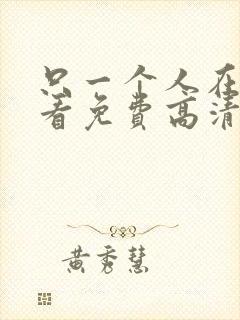 只一个人在
着免费高清
黄秀慧